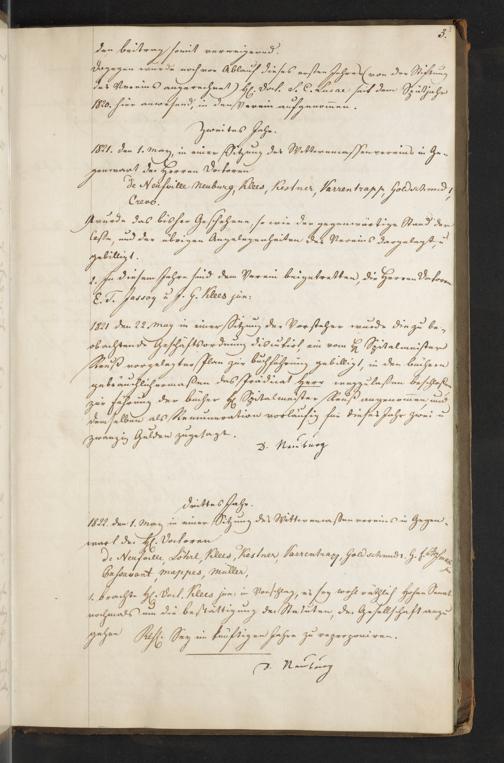 3.
den beitrag somit verweigernd.
Dagegen wurde noch vor Ablauf dieses ersten Jahres (von der Stiftung
des Vereins angerechnet) H. Doct. S. C. Lucae seit dem Spätjahr
1820. hier anwesend, in den Verein aufgenommen.
Zweites Jahr.
1821. den 1. May, in einer Sitzung des Wittwencassenvereins in Ge-
genwart der Herren Doctoren
de Neufville, Neuburg, Klees, Kestner, Varrentrapp, Goldschmidt,
Creve.
wurde das bisher Geschehene so wie der gegenwärtige Stand der
Casse, und der übrigen Angelegenheiten des Vereins dargelegt u
gebilligt.
2. In diesem Jahre sind dem Verein beigetretten, die Herren Doctoren
E. F. Jassoy u J. G. Klees jun:
1821 den 22. May in einer Sitzung der Vorsteher wurde die zu be-
obachtende Geschäftsordnung discutirt ein vom H. Spitalmeister
vorgelegter Plan zur Buchführung gebilligt, in den büchern
gebräuchlichermaßen das Prädicat Herr wegzulassen beschloßen
zur Führung der bücher H. Spitalmeister angenommen und
demselben als Remuneration vorläufig für dieses Jahr zwei u
zwanzig Gulden zugesagt.
D. Neuburg
Drittes Jahr.
1822. den 1. May in einer Sitzung des Wittwencassenvereins in Gegen-
wart der H. Doctoren
de Neufville, Löhrl, Klees, Kestner, Varrentrapp, Goldschmidt,
Passavant, Mappes, Müller,
1. brachte H. Doct. Klees jun: in Vorschlag, es sey wohl räthlich Hohen Senat
nochmals um die bestättigung der Statuten, der Gesellschaft anzu
gehen Resp. Sey in künftigem Jahre zu reproponiren.
D. Neuburg